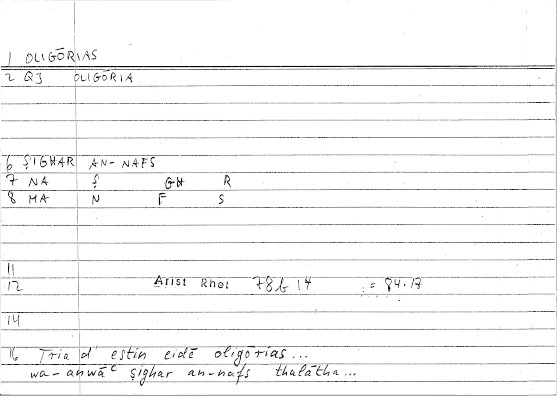 1 OLIGŌRIAS
2 Q3 OLIGŌRIA
6 ṢIGHAR AN-NAFS
7 NA Ṣ GH R
8 MA N F S
11
12 Arist Rhet 78b 14 = 84.17
14
16 Tria d' estin eidē oligōrias...
wa-anwāʿ ṣighar an-nafs thalātha...